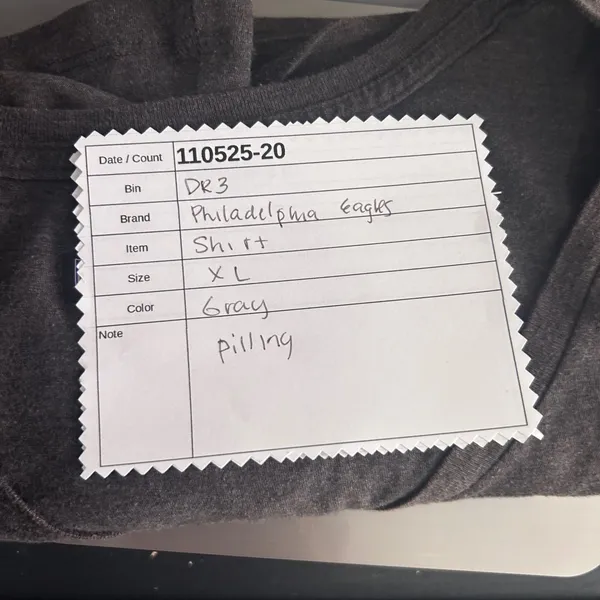 Date / Count 110525-20
Bin DR3
Brand Philadelphia Eagles
Item Shirt
Size XL
Color Gray
Note pilling